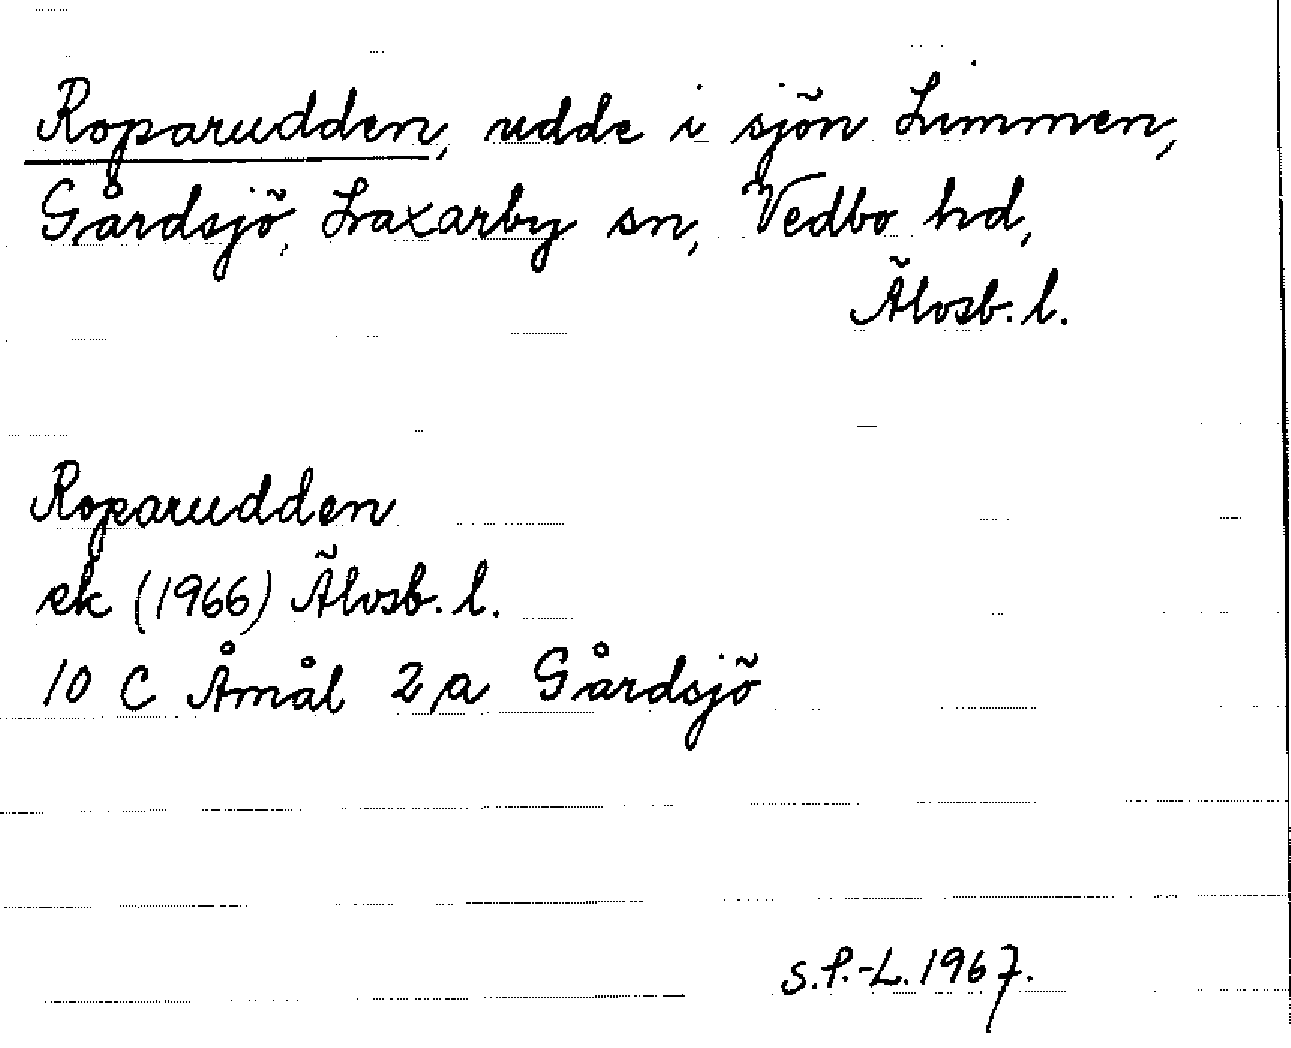 Roparudden, udde i sjön Limmen,
Gårdsjö, Laxarby sn, Vedbo hd,
Älvsb. l.
Roparudden
ek (1966) Älvsb. l.
10 C Åmål 2 a Gårdsjö
S.P.-L. 1967.